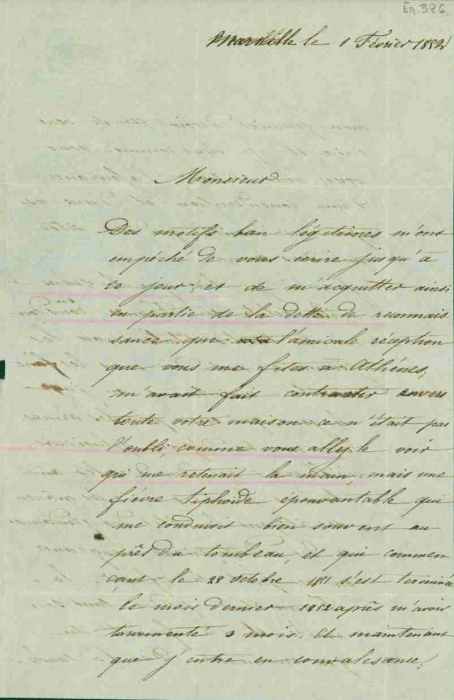 En 326.
Marseille le 1 Février 1852
Monsieur
Des motifs bien légitimes m'ont
empêché de vous écrire jusqu'à
ce jour, et de m'acquitter ainsi
en partie de la dette de reconnais
sance que l'amicale réception
que vous me fites à Athénes,
m'avait fait contracter envers
toute votre maison ce n'était pas
l'oubli comme vous allez le voir
qui me retenait la main, mais une
fièvre tiphoïde épouvantable qui
me conduisit bien souvent au
près du tombeau, et qui commen
çant le 28 octobre 1851 s'est terminé
le mois dernier 1852 après m'avoir
tourmenté 3 mois. Et maintenant
que j'entre en convalescence,